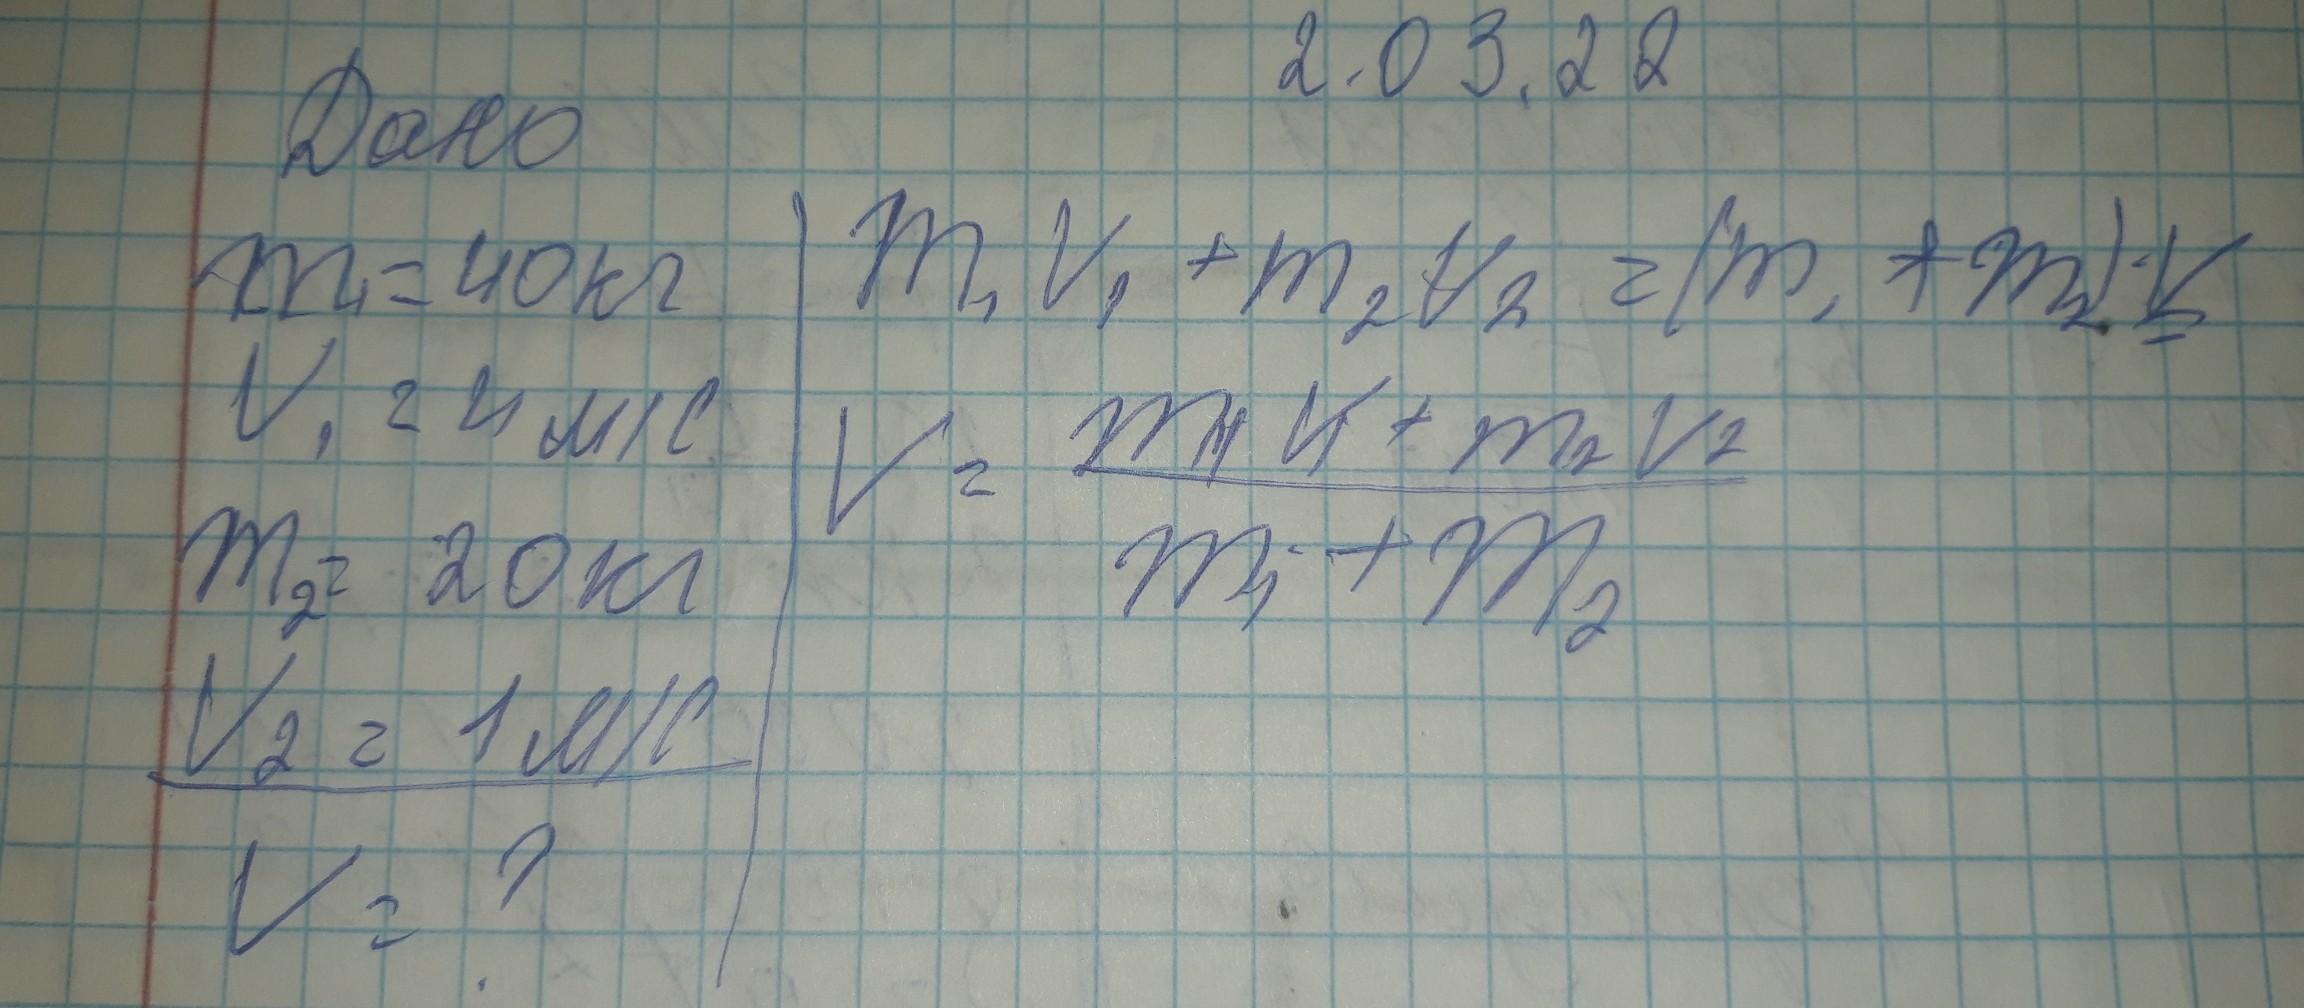 2.03.22
Дано
m₁ = 40 кг
V₁ = 4 м/с
m₂ = 20 кг
V₂ = 1 м/с
V = ?
m₁ V₁ + m₂ V₂ = (m₁ + m₂) · V
V = m₁ V₁ + m₂ V₂
m₁ + m₂